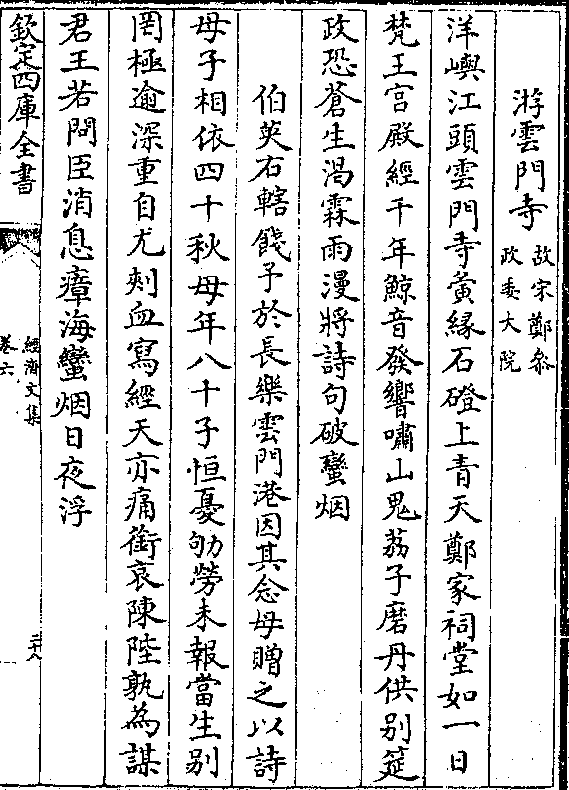 游雲門寺 故宋鄭叅政委大院
洋嶼江頭雲門寺夤縁石磴上青天鄭家祠堂如一日
梵王宫殿經千年鯨音發響嘯山鬼荔子磨丹供别筵
政恐蒼生渴霖雨漫將詩句破蠻烟
伯英右轄餞予於長樂雲門港因其念母贈之以詩
母子相依四十秋母年八十子恒憂劬勞未報當生别
罔極逾深重自尤刺血寫經天亦痛銜哀陳陛孰為謀
君王若問臣消息瘴海蠻烟日夜浮
欽定四庫全書
經濟文集
卷六
二十八